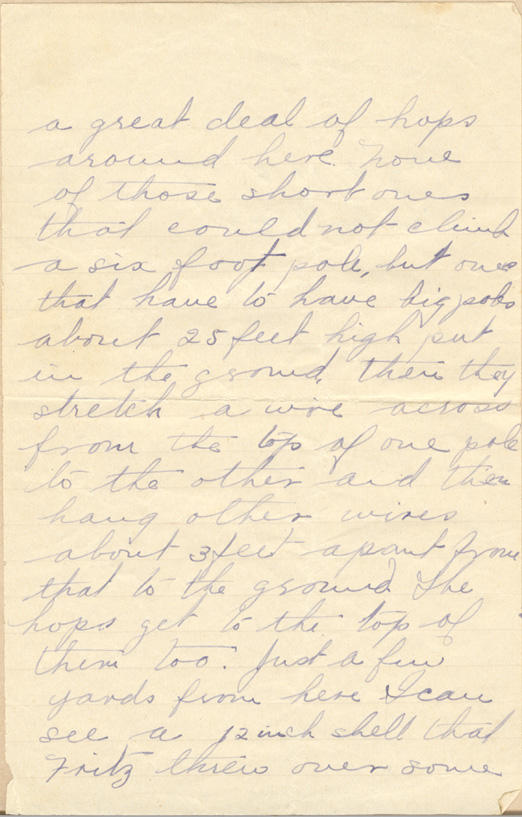 a great deal of hops
around here. None
of those short ones
that could not climb
a six foot pole, but ones
that have to have big pols
about 25 feet high put
in the ground, then they
stretch a wire across
from the top of one pole
to the other and then
hang other wires
about 3 feet apart from
that to the ground. The
hops get to the top of
them too. Just a few
yards from here I can
see a 12 inch shell that
Fritz threw over some